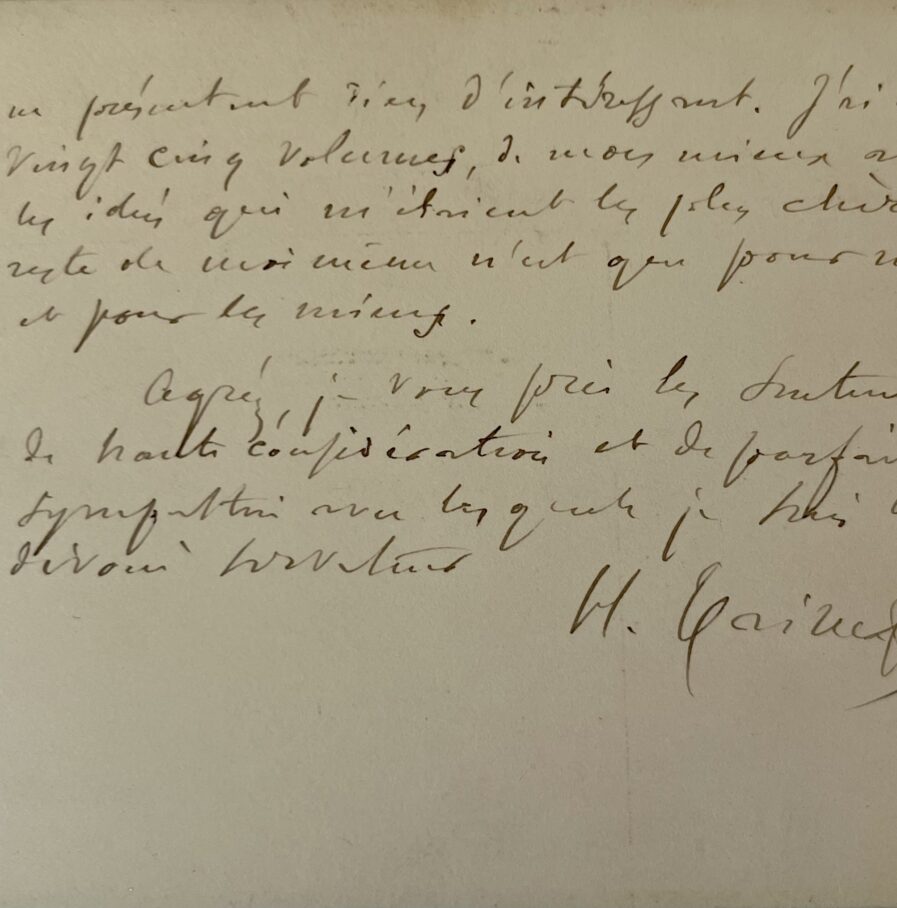 ne présentent rien d'intéressant. J'ai
vingt cinq volumes, de mon mieux
les idées qui m'étaient les plus chèr
reste de moi même n'est que pour
et pour les miens.
Agréez, je vous prie les sentim
de haute considération et de parfai
sympathie avec lesquels je suis
dévoué serviteur
H. Taine